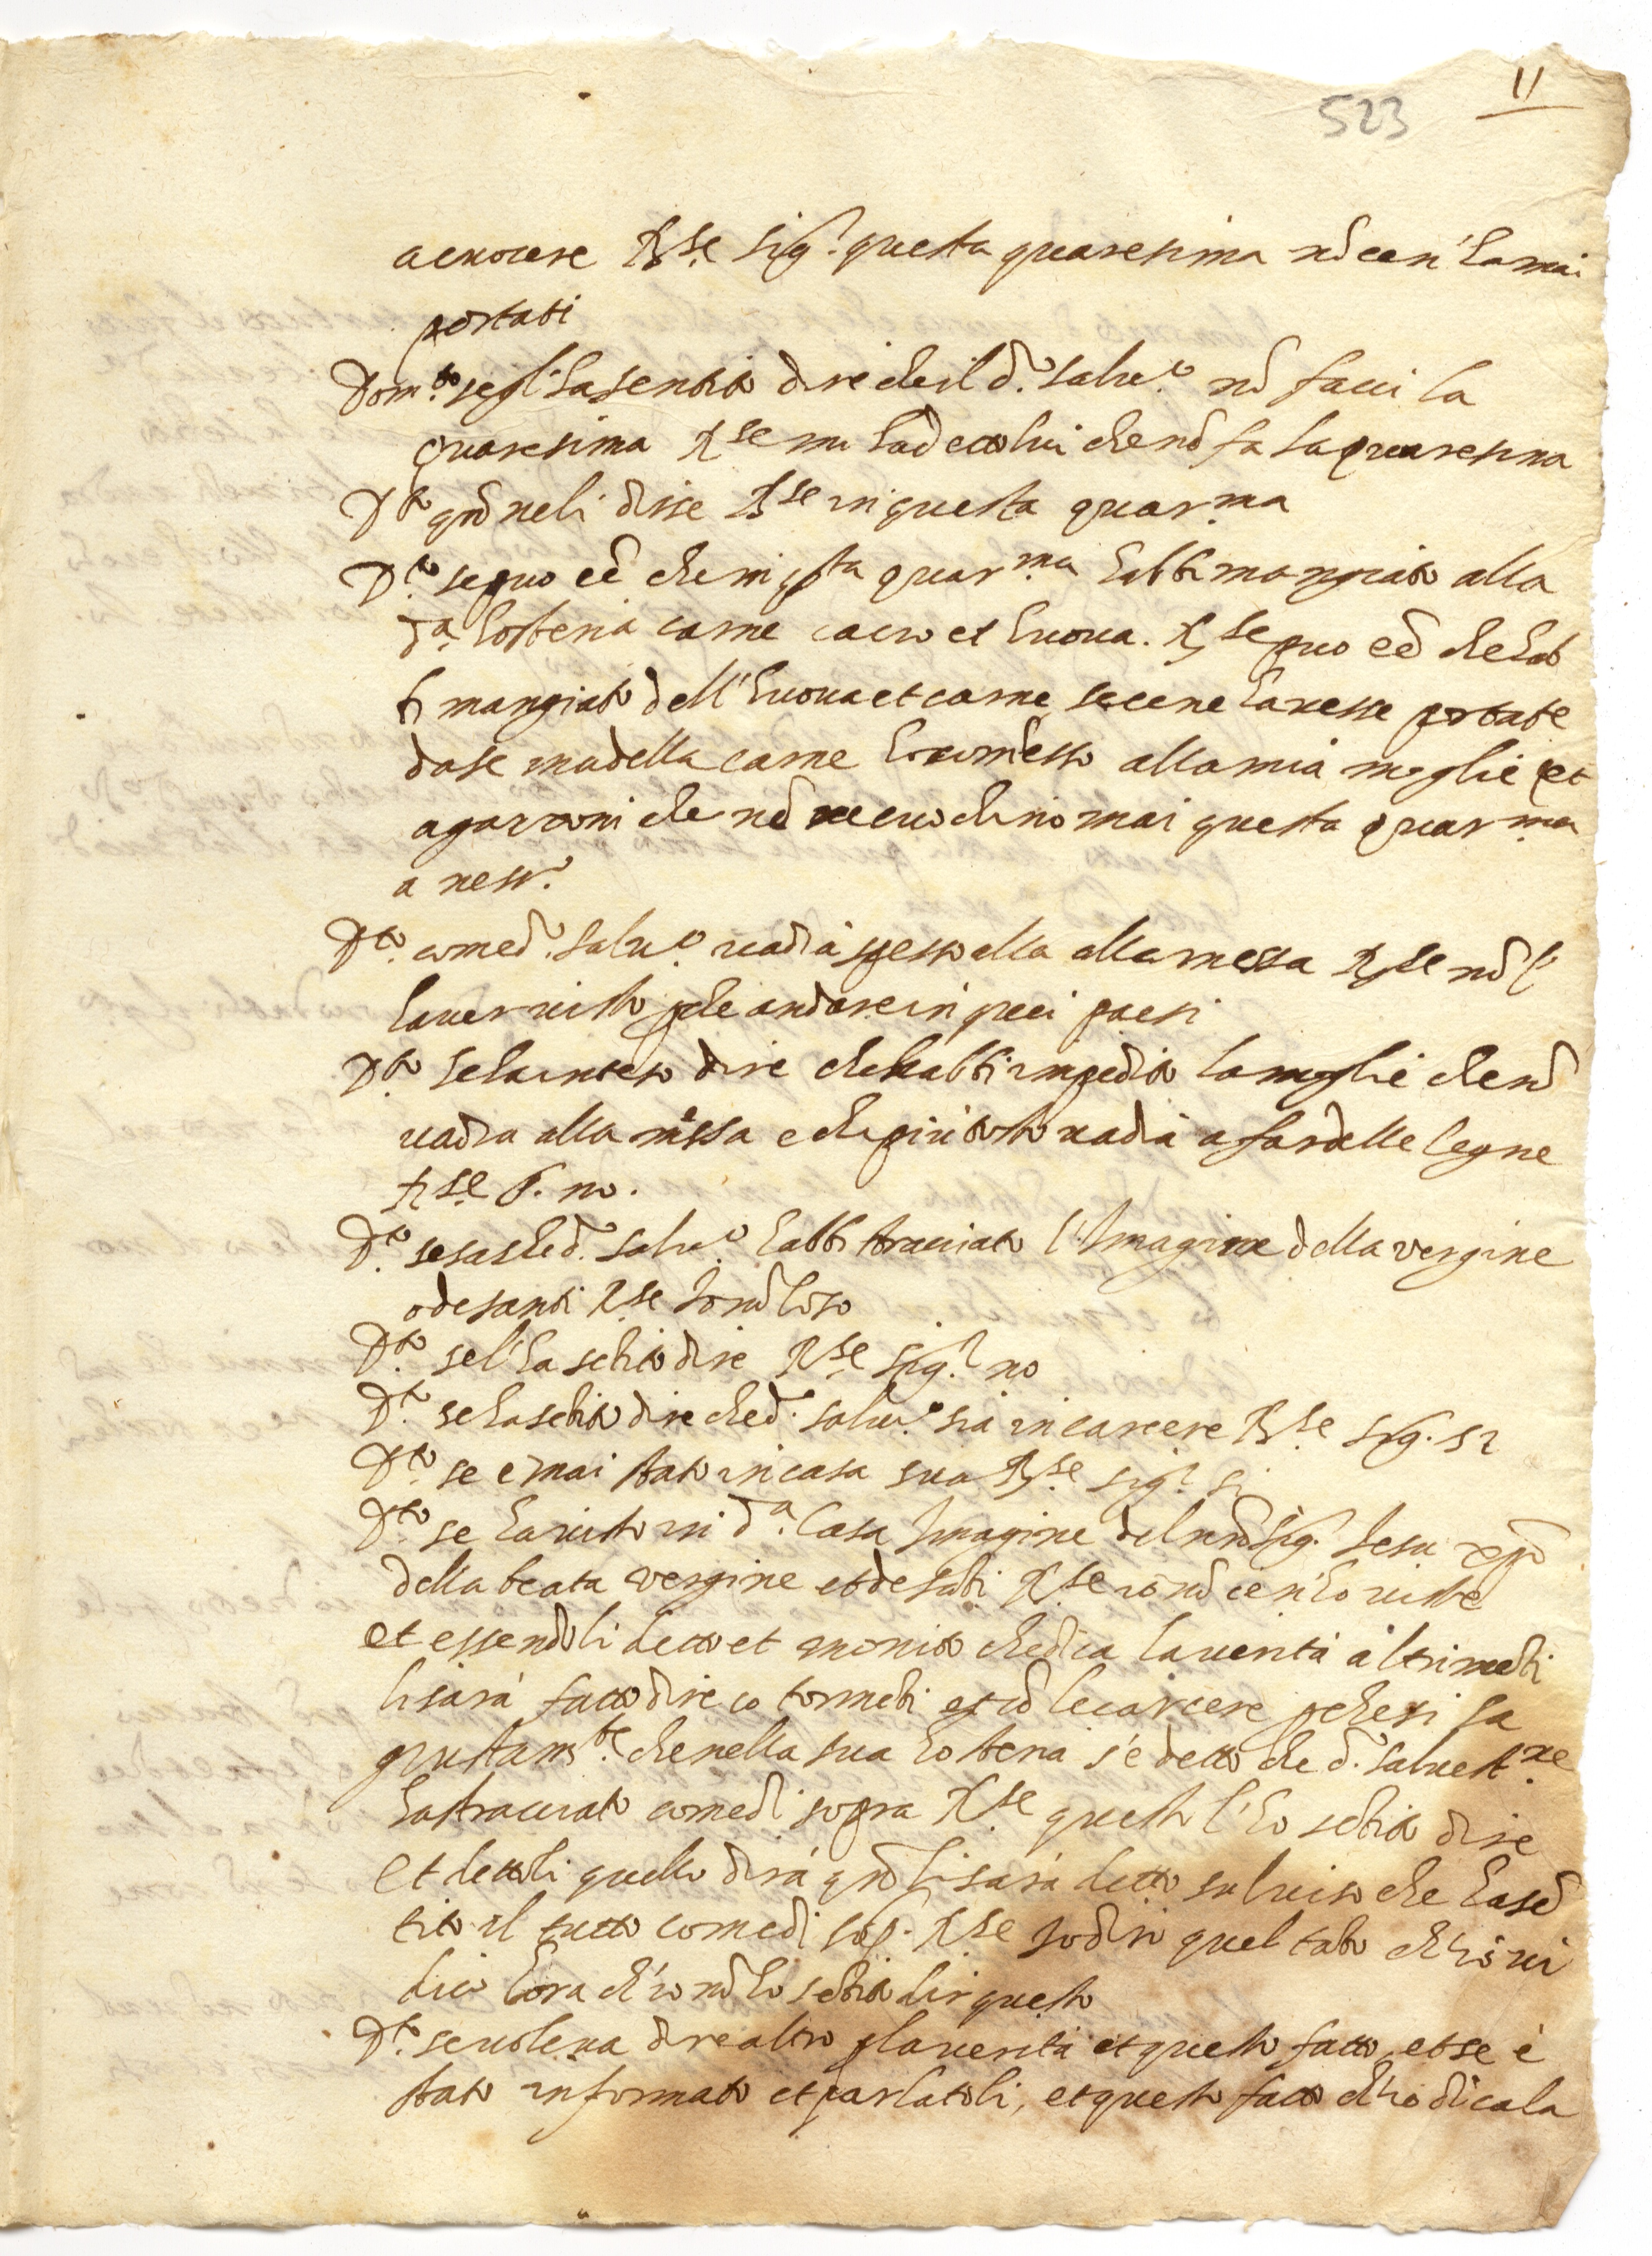 11
523
a cuocere Rse sig.r questa quaresima nõ cen' ha mai
portati
Dom.to se gl' ha sentito dire che il d.o Salu.o nõ facci la
quaresima Rse mi ha detto lui che nõ fa la quaresima
D.to qñ neli disse Rse in questa quar.ma
D.to se puo eẽ che in q.ta quar.ma habbi mangiato alla
d.a hosteria carne cacio et huova. Rse puo eẽ che hab
bi mangiato dell' huova et carne se cene havesse portate
da se ma della carne ho comesso alla mia moglie et
a garzoni che nõ ne cuochino mai questa quar.ma
a ness.o
D.to come d.o Salu.o vadia spesso alla alla messa Rse nõ l'
haver visto p che andare in quei paesi
D.to se ha inteso dire che habbi impedito la moglie che nõ
vadia alla messa e che piu tosto vadia a far delle legne
Rse S. no.
D.to se sa che d.o Salu.o habbi stracciato l'Imagine della vergine
o de santi Rse io nõ lo so
D.to se l' ha sẽtito dire Rse sig.r no
D.to se ha sẽtito dire che d.o Salu.o sia in carcere Rse sig. si
D.to se e mai stato in casa sua Rse sig.r si
D.to se ha visto in d.a Casa Imagine del nrõ Sig. Jesu xpõ
della beata vergine et de sãti Rse io nõ cen' ho viste
et essendoli detto et amonito che dica la verita altrimẽti
li sará fatto dire cõ tormẽti et cõ le carcere p che si sa
giustam.te che nella sua hosteria s'é detto che d.o Saluest.ne
ha stracciato come di sopra Rse questo l'ho sẽtito dire
Et dettoli quello dirá qñ li sará detto sul viso che ha sẽ
tito il tutto come di sop. Rse io diró quel tato ch'io vi
dico hora ch'io nõ ho sẽtito dir questo
D.to se voleva dire altro p la verita et questo fatto, et se è
stato informato et parlatoli, et questo fatto ch'io dica la